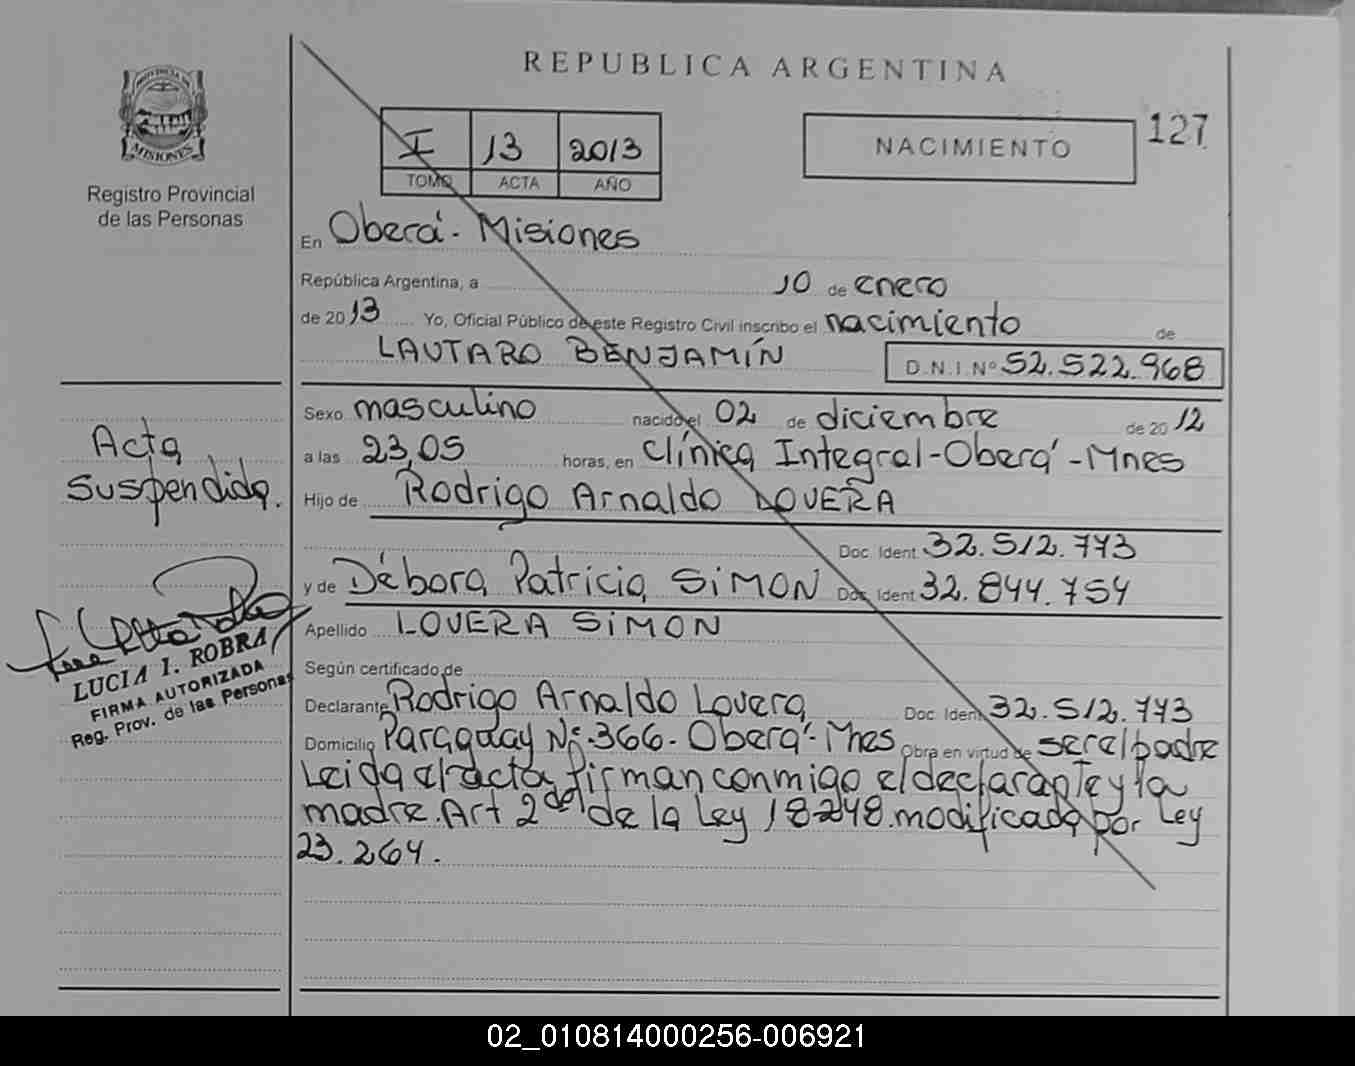 REPUBLICA ARGENTINA
PROVINCIA DE
MISIONES
Registro Provincial
de las Personas
I 13 2013
TOMO ACTA AÑO
NACIMIENTO
127
En Oberá - Misiones
República Argentina, a 10 de enero
de 2013 Yo, Oficial Público de este Registro Civil inscribo el nacimiento de
LAUTARO BENJAMÍN D.N.I.Nº 52.522.968
Sexo masculino nacido el 02 de diciembre de 2012
a las 23,05 horas, en Clínica Integral-Oberá-Mnes
Hijo de Rodrigo Arnaldo LOVERA
Doc. Ident. 32.512.773
y de Débora Patricia SIMON Doc. Ident. 32.844.754
Apellido LOVERA SIMON
Según certificado de
Declarante Rodrigo Arnaldo Lovera Doc. Ident. 32.512.773
Domicilio Paraguay Nº 366 - Oberá - Mnes Obra en virtud de ser el padre
Leida el acta, firman conmigo el declarante y la
madre. Art 2 de la Ley 18248 modificada por Ley
23.264.
Acta
suspendida.
LUCIA I. ROBRA
FIRMA AUTORIZADA
Reg. Prov. de las Personas
02_010814000256-006921